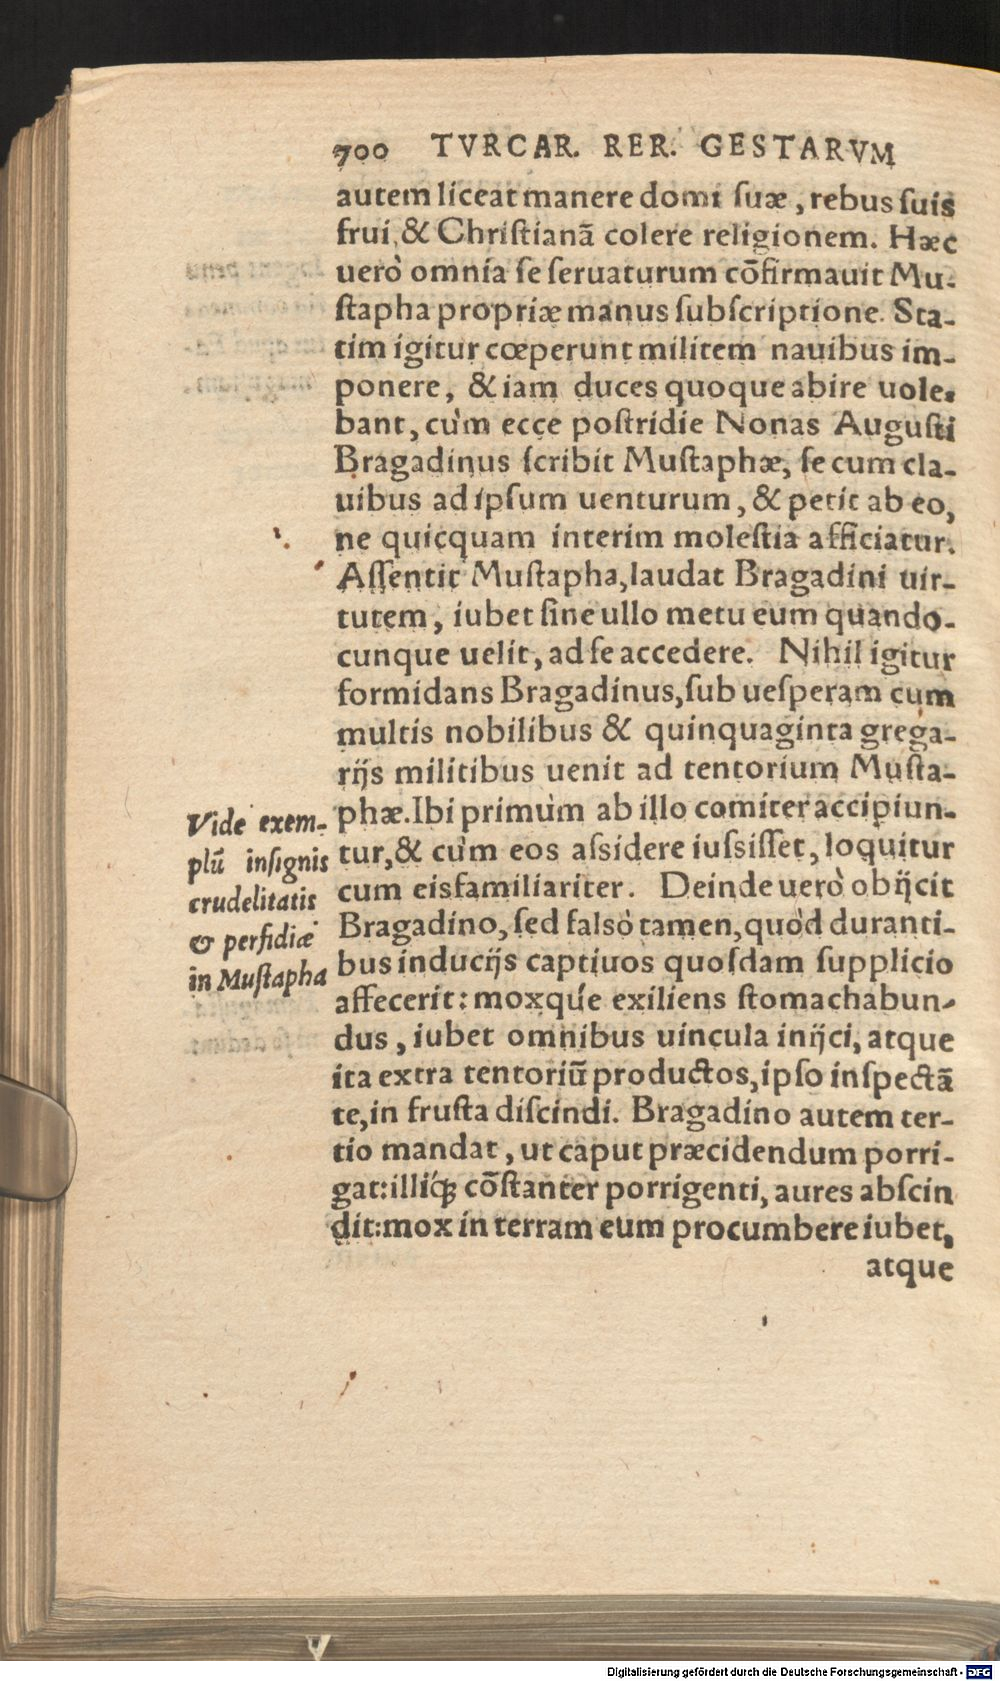 700 TVRCAR. RER. GESTARVM
autem liceat manere domi suæ, rebus suis
frui, & Christianã colere religionem. Hæc
uerò omnia se seruaturum cõfirmauit Mu-
stapha propriæ manus subscriptione. Sta-
tim igitur cœperunt militem nauibus im-
ponere, & iam duces quoque abire uole-
bant, cùm ecce postridie Nonas Augusti
Bragadinus scribit Mustaphæ, se cum cla-
uibus ad ipsum uenturum, & petit ab eo,
ne quicquam interim molestia afficiatur.
Assentit Mustapha, laudat Bragadini uir-
tutem, iubet sine ullo metu eum quando-
cunque uelit, ad se accedere. Nihil igitur
formidans Bragadinus, sub uesperam cum
multis nobilibus & quinquaginta grega-
rijs militibus uenit ad tentorium Musta-
phæ. Ibi primùm ab illo comiter accipiun-
tur, & cùm eos assidere iussisset, loquitur
cum eis familiariter. Deinde uerò obijcit
Bragadino, sed falsò tamen, quòd duranti-
bus inducijs captiuos quosdam supplicio
affecerit: moxqúe exiliens stomachabun-
dus, iubet omnibus uincula inijci, atque
ita extra tentoriũ productos, ipso inspectã
te, in frusta discindi. Bragadino autem ter-
tio mandat, ut caput præcidendum porri-
gat: illiq́ꝫ cõstanter porrigenti, aures abscin
dit: mox in terram eum procumbere iubet,
atque
Vide exem-
plũ insignis
crudelitatis
& perfidiæ
in Mustapha
Digitalisierung gefördert durch die Deutsche Forschungsgemeinschaft - DFG